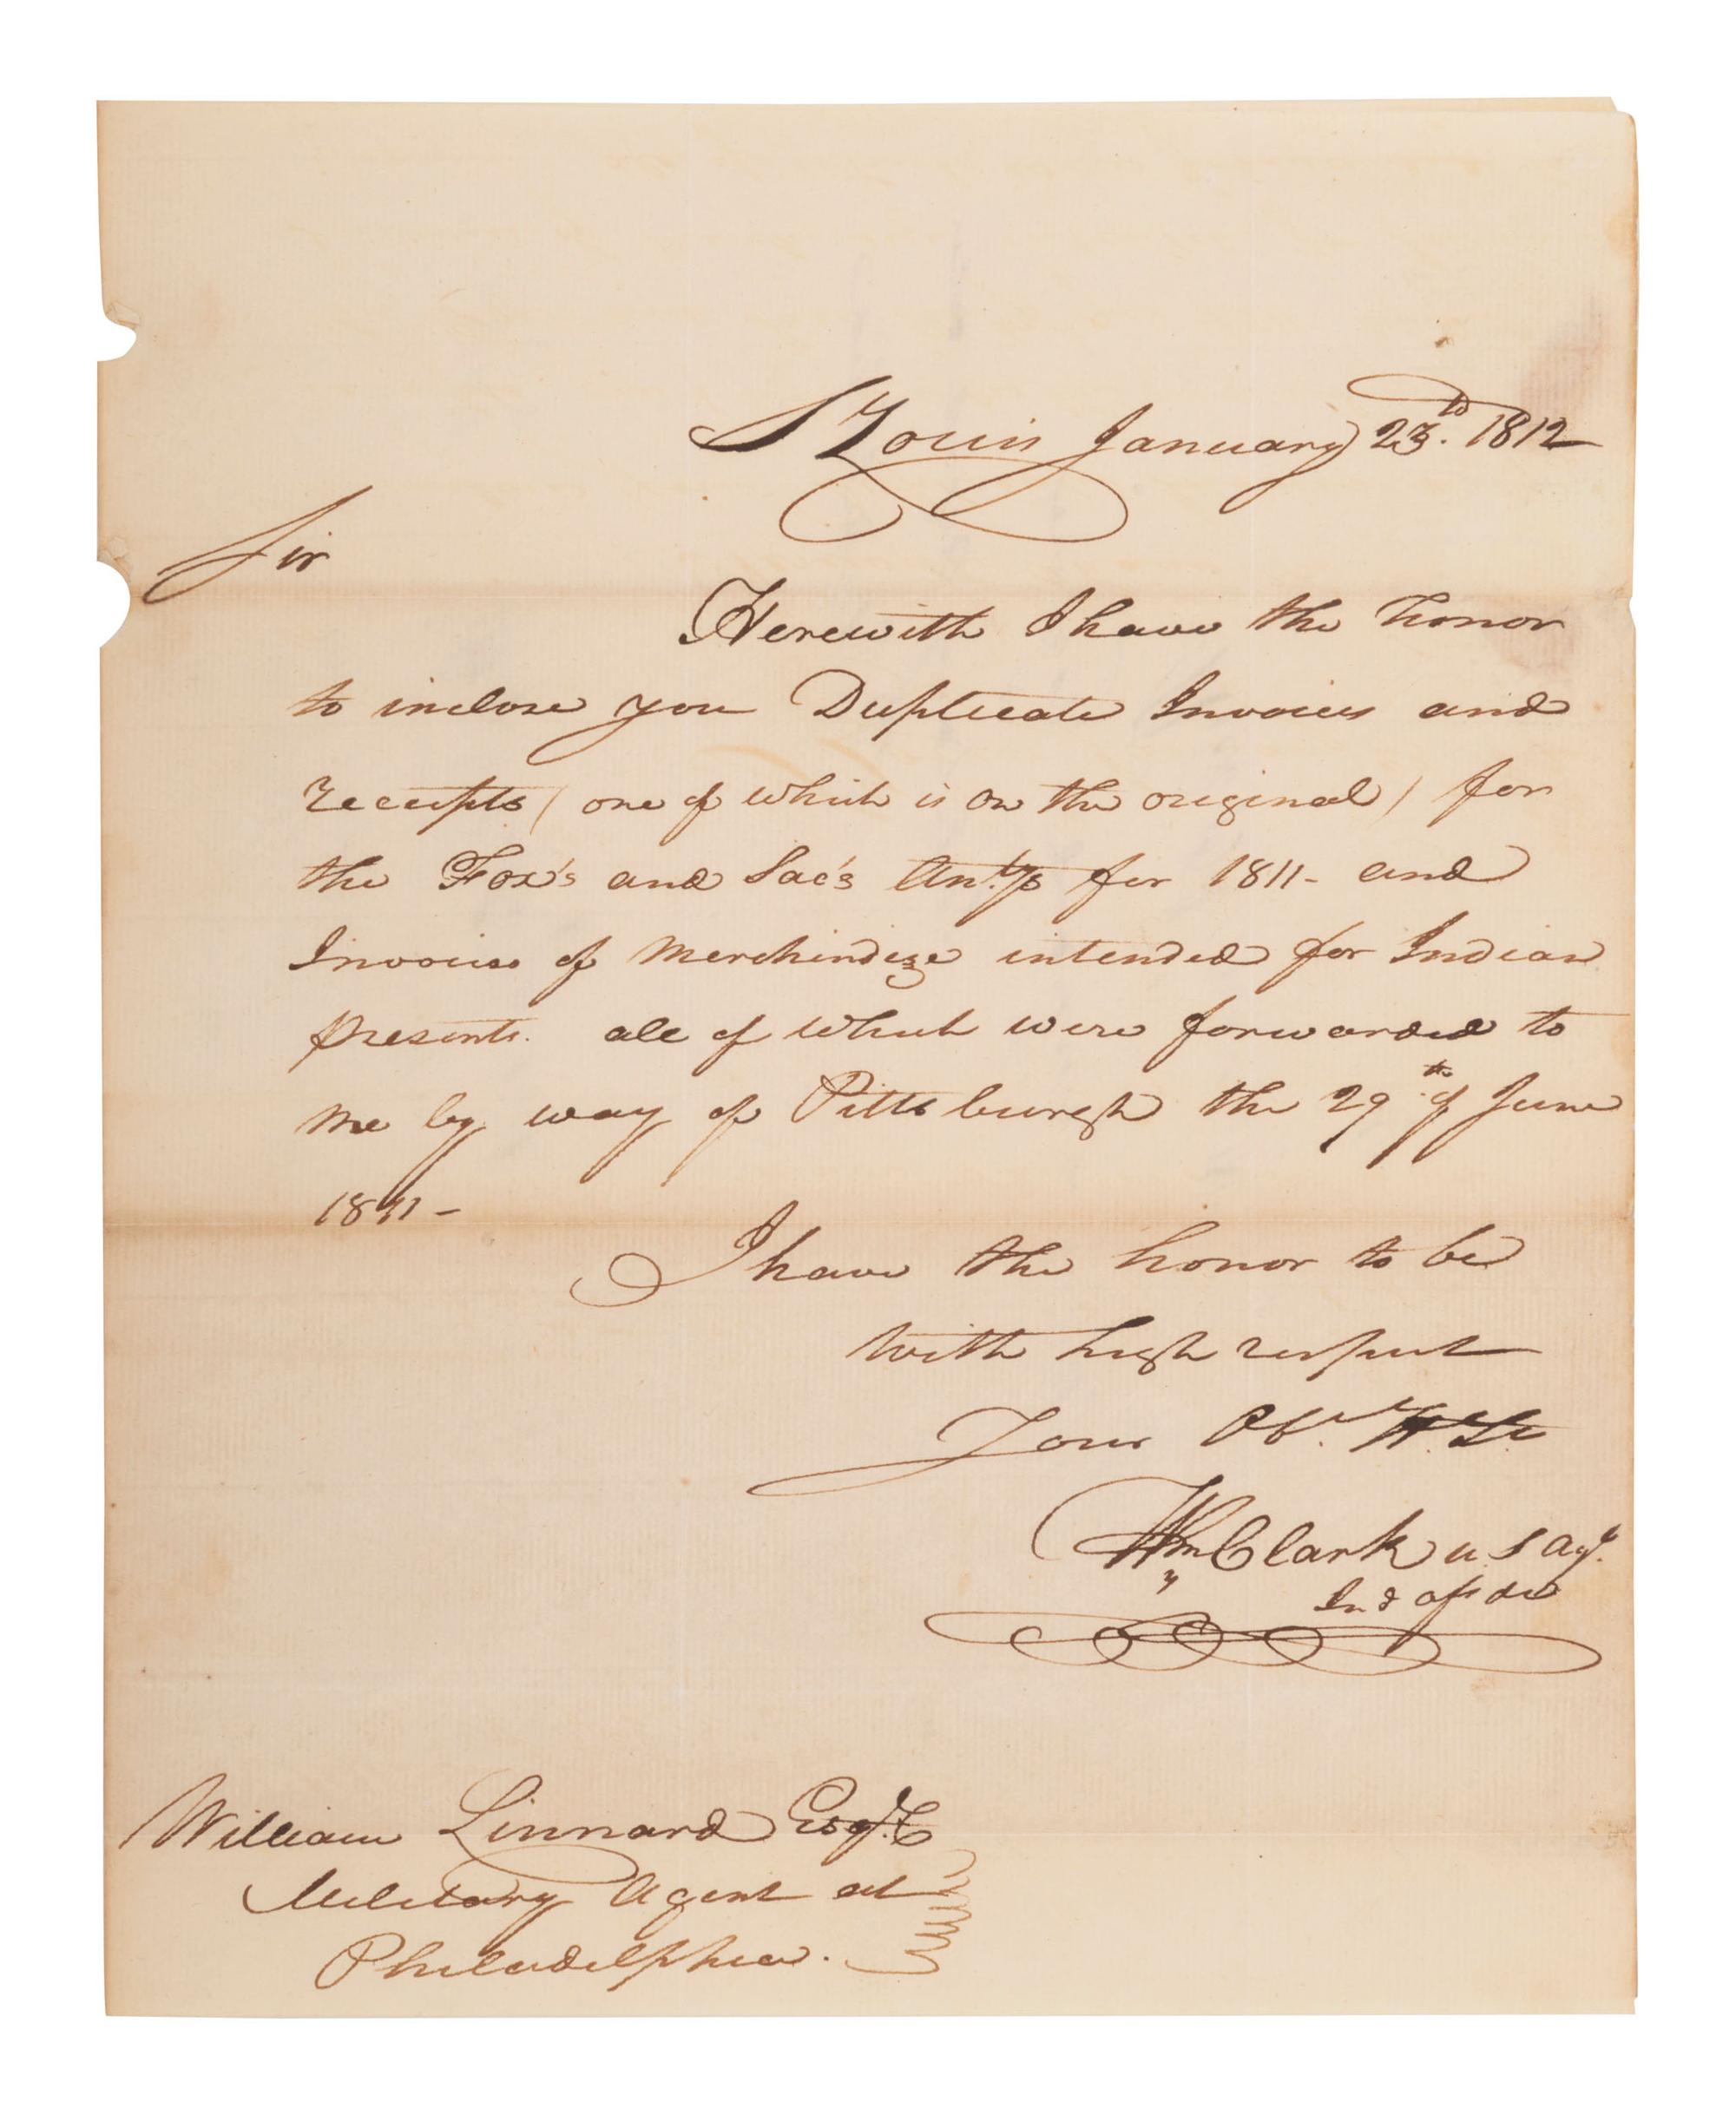 S Louis January 23.d 1812
Sir
Herewith I have the honor
to inclose you Duplicate Invoices and
receipts (one of which is on the original) for
the Fox's and Sac's for 1811 - and
Invoices of Merchindize intended for Indian
presents. all of which were forwarded to
me by way of Pittsburgh the 29th of June
1811 -
I have the honor to be
with high respect
Your Obt. H. Sv
Wm Clark u.s agt.
Ind affds
William Linnard Esqr.
Military Agent at
Philadelphia.